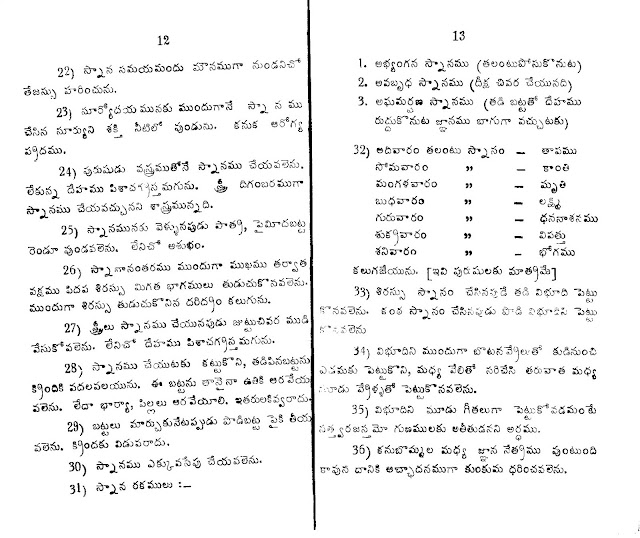 12
22) స్నాన సమయమందు మౌనముగా నుండనిచో
తేజస్సు హరించును.
23) సూర్యోదయమునకు ముందుగానే స్నానము
చేసిన సూర్యుని శక్తి నీటిలో వుండును. కనుక ఆరోగ్య
ప్రదము.
24) పురుషుడు వస్త్రముతోనే స్నానము చేయవలెను.
లేకున్న దేహము పిశాచగ్రస్తమగును. స్త్రీ దిగంబరముగా
స్నానము చేయవచ్చునని శాస్త్రమున్నది.
25) స్నానమునకు వెళ్ళునపుడు పాత్ర, పైమీదబట్ట
రెండూ వుండవలెను. లేనిచో అశుభం.
26) స్నానానంతరము ముందుగా ముఖము తర్వాత
వక్షము పిదప శిరస్సు మిగత భాగములు తుడుచుకొనవలెను.
ముందుగా శిరస్సు తుడుచుకొనిన దరిద్రం కలుగును.
27) స్త్రీలు స్నానము చేయునపుడు జుట్టుచివర ముడి
వేసుకోవలెను. లేనిచో దేహము పిశాచగ్రస్తమగును.
28) స్నానము చేయుటకు కట్టుకొని, తడిపినబట్టను
క్రిందికి వదలవలయును. ఈ బట్టను తానైనా ఉతికి ఆరవేయ
వలెను. లేదా భార్యా, పిల్లలు ఆరవేయాలి. ఇతరులకివ్వరాదు.
29) బట్టలు మార్చుకునేటప్పుడు పొడిబట్ట పైకి తీయ
వలెను. క్రిందకు విడువరాదు.
30) స్నానము ఎక్కువసేపు చేయవలెను.
31) స్నాన రకములు :—
13
1. అభ్యంగన స్నానము (తలంటుపోసుకొనుట)
2. అవబృధ స్నానము (దీక్ష చివర చేయునది)
3. అఘమర్షణ స్నానము (తడి బట్టతో దేహము
రుద్దుకొనుట జ్ఞానము బాగుగా వచ్చుటకు)
32) ఆదివారం తలంటు స్నానం – తాపము
సోమవారం ” – కాంతి
మంగళవారం ” – మృతి
బుధవారం ” – లక్ష్మి
గురువారం ” – ధననాశనము
శుక్రవారం ” – విపత్తు
శనివారం ” – భోగము
కలుగజేయును. [ఇవి పురుషులకు మాత్రమే]
33) శిరస్సు స్నానం చేసినప్పుడే తడి విభూది పెట్టు
కొనవలెను. కంఠ స్నానం చేసినపుడు పొడి విభూదిని పెట్టు
కొనవలెను
34) విభూదిని ముందుగా బొటనవ్రేలుతో కుడినుంచి
ఎడమకు పెట్టుకొని, మధ్య వేలితో సరిచేసి తరువాత మధ్య
మూడు వ్రేళ్ళతో పెట్టుకొనవలెను.
35) విభూదిని మూడు గీతలుగా పెట్టుకోవడమంటే
సత్త్వరజస్తమో గుణములకు అతీతుడనని అర్థము.
36) కనుబొమ్మల మధ్య జ్ఞాన నేత్రము వుంటుంది
కావున దానికి అచ్ఛాదనముగా కుంకుమ ధరించవలెను.